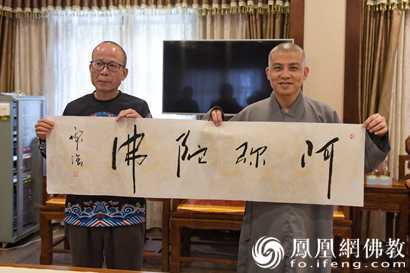 阿弥陀佛
鳳凰網佛教
fo.ifeng.com